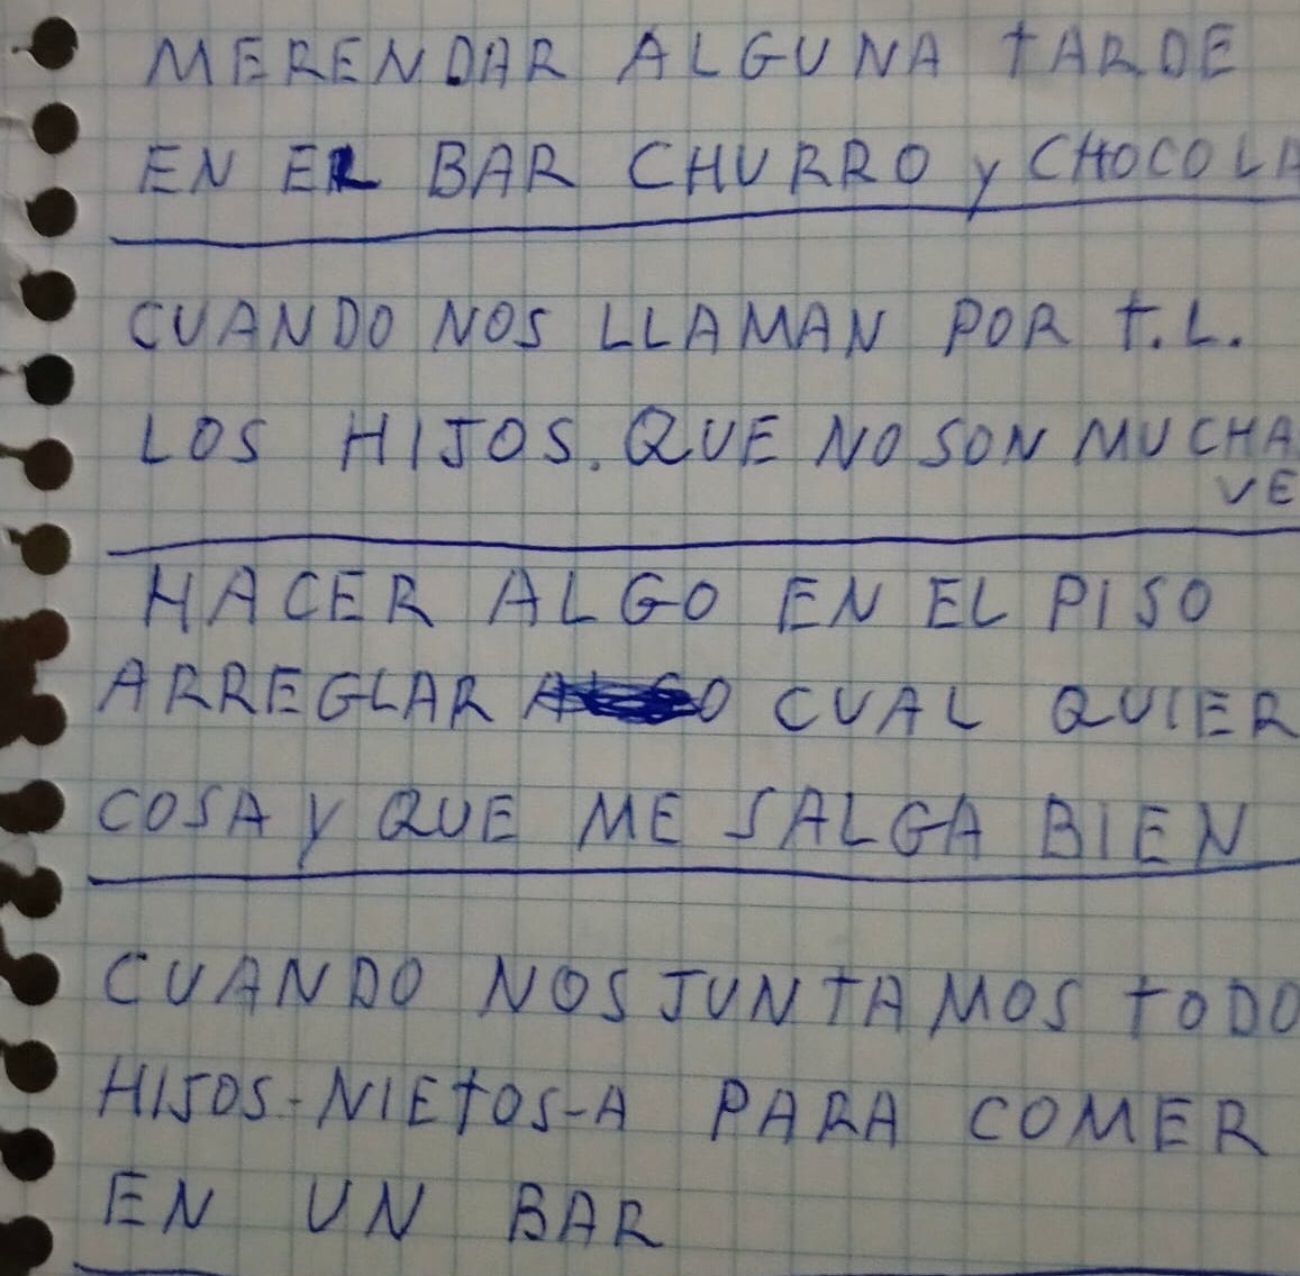 MERENDAR ALGUNA TARDE
EN EL BAR CHURRO y CHOCOLA
CUANDO NOS LLAMAN POR T.L.
LOS HIJOS. QUE NO SON MUCHA
VE
HACER ALGO EN EL PISO
ARREGLAR CUAL QUIER
COSA Y QUE ME SALGA BIEN
CUANDO NOS JUNTAMOS TODO
HIJOS-NIETOS-A PARA COMER
EN UN BAR